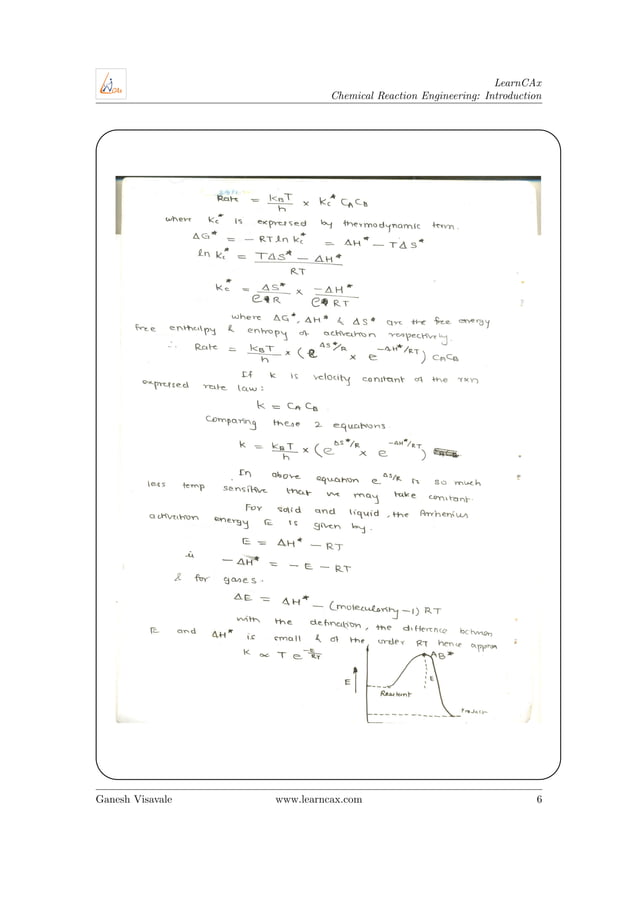 LearnCAx
Chemical Reaction Engineering: Introduction
Rate = k_BT/h × Kc* C_A C_B
where Kc* is expressed by thermodynamic term.
ΔG* = - RT ln Kc* = ΔH* - TΔS*
ln Kc* = TΔS* - ΔH* / RT
Kc* = ΔS* / e R × -ΔH* / e RT
where ΔG*, ΔH* & ΔS* are the free energy
free enthalpy & entropy of activation respectively.
∴ Rate = k_BT/h × (e^ΔS*/R × e^-ΔH*/RT) C_A C_B
If k is velocity constant of the rxn
expressed rate law:
k = C_A C_B
Comparing these 2 equations
k = k_BT/h × (e^ΔS*/R × e^-ΔH*/RT)
In above equation e^ΔS/R is so much
less temp sensitive that we may take constant.
For solid and liquid, the Arrhenius
activation energy E is given by.
E = ΔH* - RT
ii - ΔH* = - E - RT
& for gases.
ΔE = ΔH* - (molecularity - 1) RT
with the defination, the difference between
E and ΔH* is small & of the order RT hence approx
K ∝ T e^-E/RT
AB*
E
E
Reactant
Product
Ganesh Visavale www.learncax.com 6